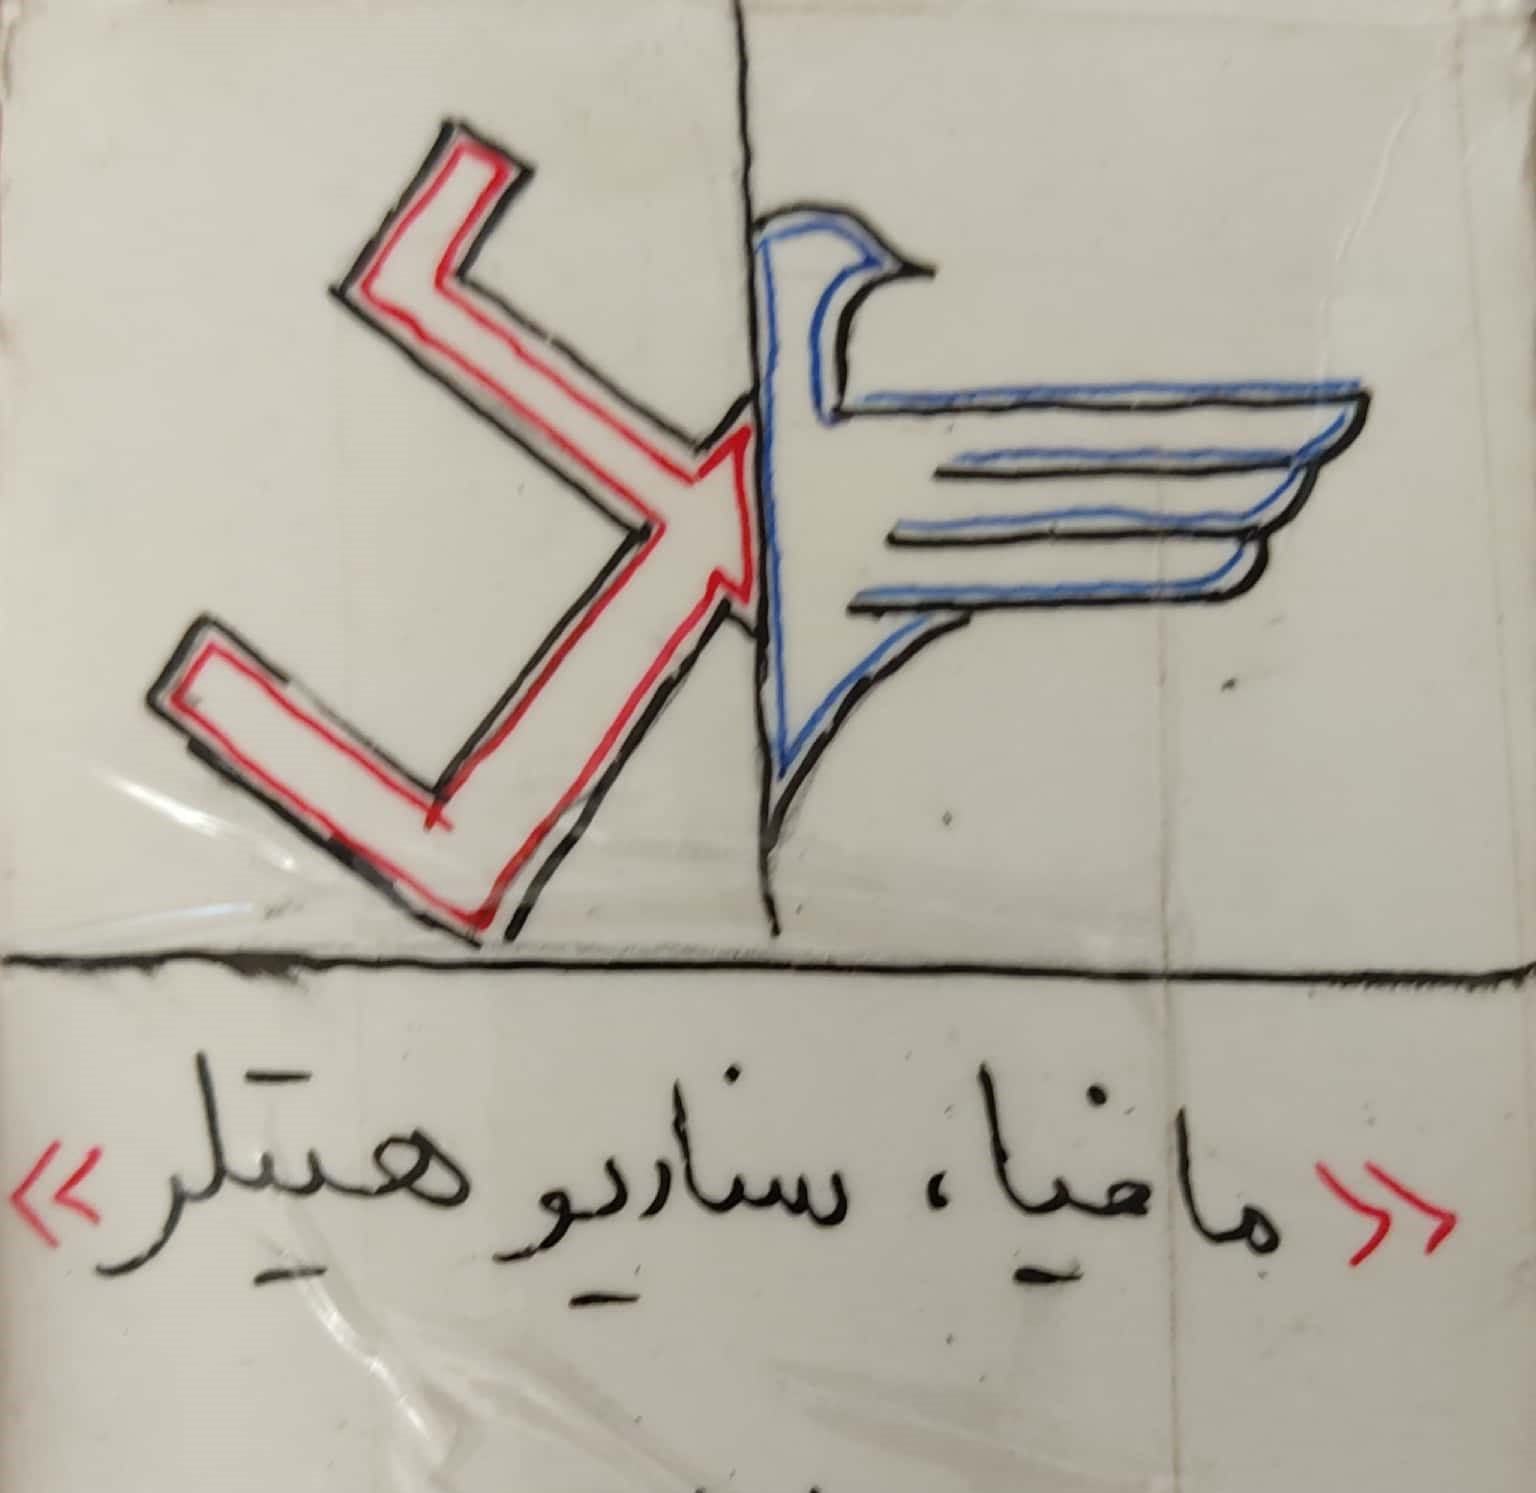 «مافیا، سناریو هیتلر»